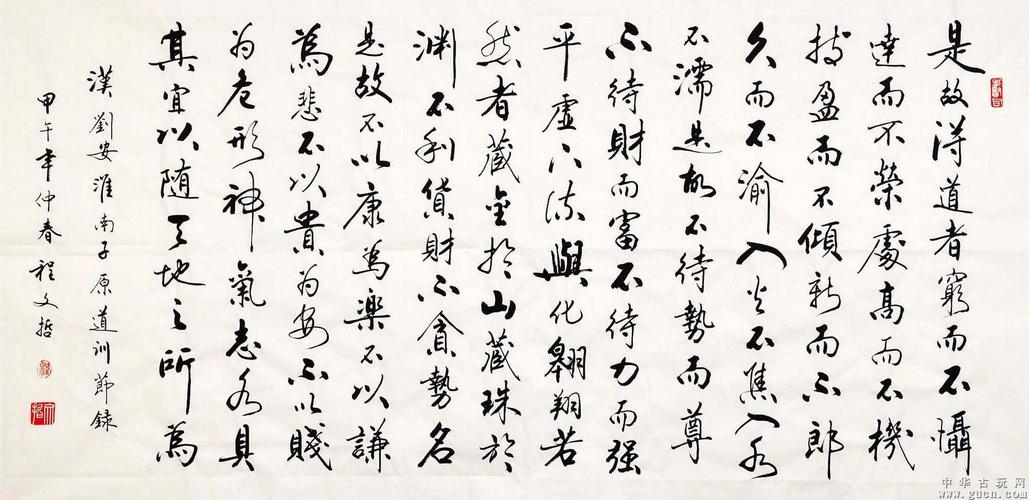 是故得道者窮而不懾
達而不榮處高而不機
持盈而不傾新而不郎
久而不渝入火不焦入水
不濡是故不待勢而尊
不待財而富不待力而强
平虛下流與化翱翔若
然者藏金於山藏珠於
淵不利貨財不貪勢名
是故不以康為樂不以謙
為悲不以貴為安不以賤
為危形神氣志各具
其宜以随天地之所為
漢劉安淮南子原道訓節録
甲午年仲春程文哲
中华古玩网
www.gucn.com